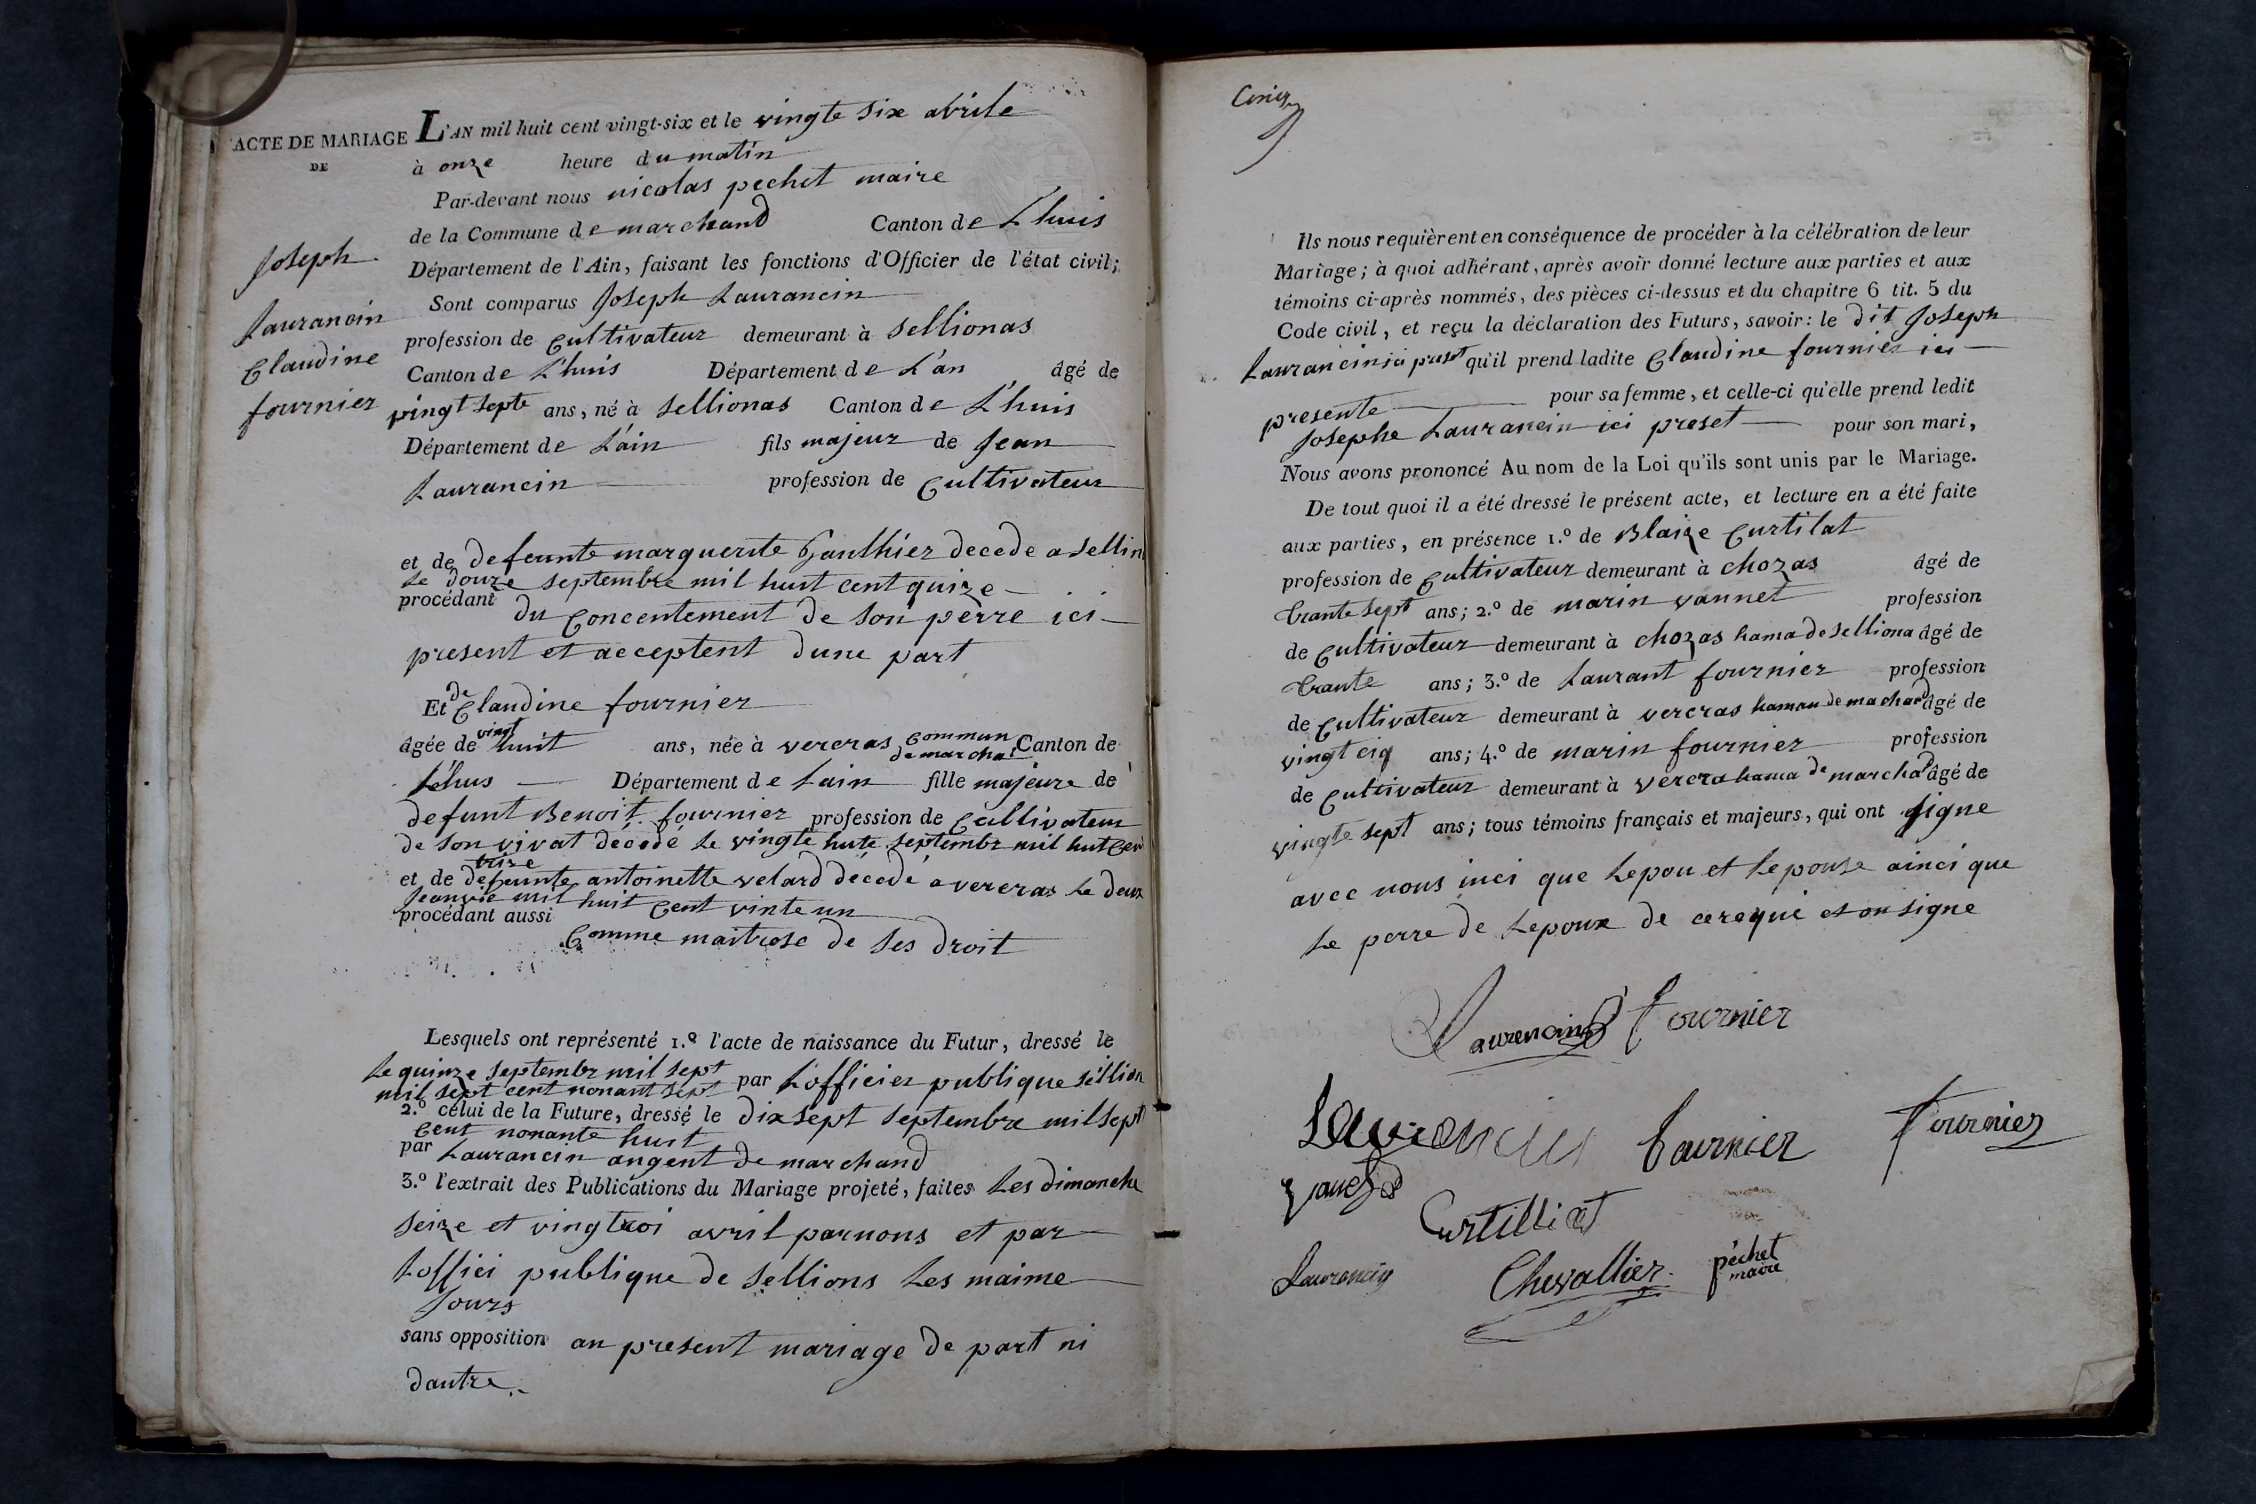 ACTE DE MARIAGE
DE
Joseph
Laurancin
Claudine
fournier
L'AN mil huit cent vingt-six et le vingte six abrile
à onze heure du matin
Par-devant nous nicolas pechet maire
de la Commune de marchand Canton de Lhuis
Département de l'Ain, faisant les fonctions d'Officier de l'état civil;
Sont comparus Joseph Laurancin
profession de Cultivateur demeurant à Sellionas
Canton de L'huis Département de L'an âgé de
vingt septe ans, né à Sellionas Canton de L'huis
Département de L'ain fils majeur de Jean
Laurancin profession de Cultivateur
et de defeunte marguerite Gaulthier decede a Sellin
le douze septembre mil huit cent quize
procédant du Concentement de son perre ici
present et acceptent dune part
Et de Claudine fournier
âgée de vingt huit ans, née à vercras commun de marchad Canton de
L'éhus Département de Lain fille majeure de
defunt Benoit fournier profession de Cultivateur
de son vivat décédé le vingte hute septembr mil hut Cen
trize
et de défeunte antoinette velard décédé a vercras le deux
Jeanvie mil huit Cent vinte un
procédant aussi
Comme maitrese de ses droit
Lesquels ont représenté 1.º l'acte de naissance du Futur, dressé le
le quinze septembr mil sept
mil sept cent nonant sept par L'officier publique séllion
2.º celui de la Future, dressé le dix sept septembre mil sept
Cent nonante huit
par Laurancin angent de marchand
3.º l'extrait des Publications du Mariage projeté, faites Les dimanche
seize et vingtroi avril parnons et par
Loffici publique de Sellions Les maime
Jours
sans opposition au present mariage de part ni
dautre.
Ils nous requièrent en conséquence de procéder à la célébration de leur
Mariage; à quoi adhérant, après avoir donné lecture aux parties et aux
témoins ci-après nommés, des pièces ci-dessus et du chapitre 6 tit. 5 du
Code civil, et reçu la déclaration des Futurs, savoir: le dit Joseph
Laurancin ici preset qu'il prend ladite Claudine fournier ici
presente pour sa femme, et celle-ci qu'elle prend ledit
Josephe Laurancin ici preset pour son mari,
Nous avons prononcé Au nom de la Loi qu'ils sont unis par le Mariage.
De tout quoi il a été dressé le présent acte, et lecture en a été faite
aux parties, en présence 1.º de Blaize Curtilat
profession de Cultivateur demeurant à chozas âgé de
trante sept ans; 2.º de marin vannet profession
de Cultivateur demeurant à chozas hama de Selliona âgé de
trante ans; 3.º de Laurant fournier profession
de Cultivateur demeurant à vercras hamau de machard âgé de
vingt ciq ans; 4.º de marin fournier profession
de Cultivateur demeurant à vercra hama de marchad âgé de
vingte sept ans; tous témoins français et majeurs, qui ont signe
avec nous inci que Lepou et Lepouse ainci que
Le perre de Lepoux de cerequi et on signe
Laurencin fournier
Laurencin fournier fournier
vanet
Curtilliat
Laurencin Chevallier péchet
maire